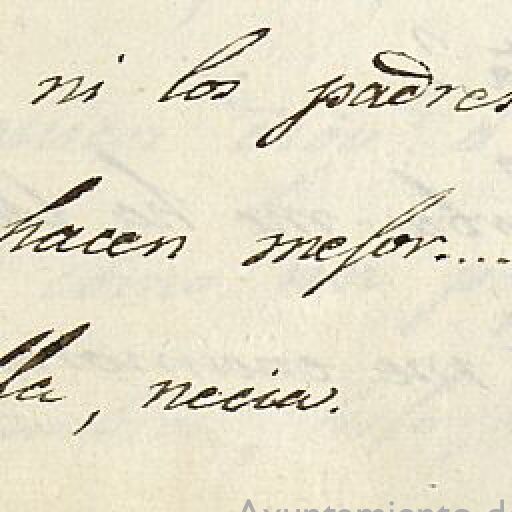 ni los padres
hacen mejor....
lla, necia.
Ayuntamiento d